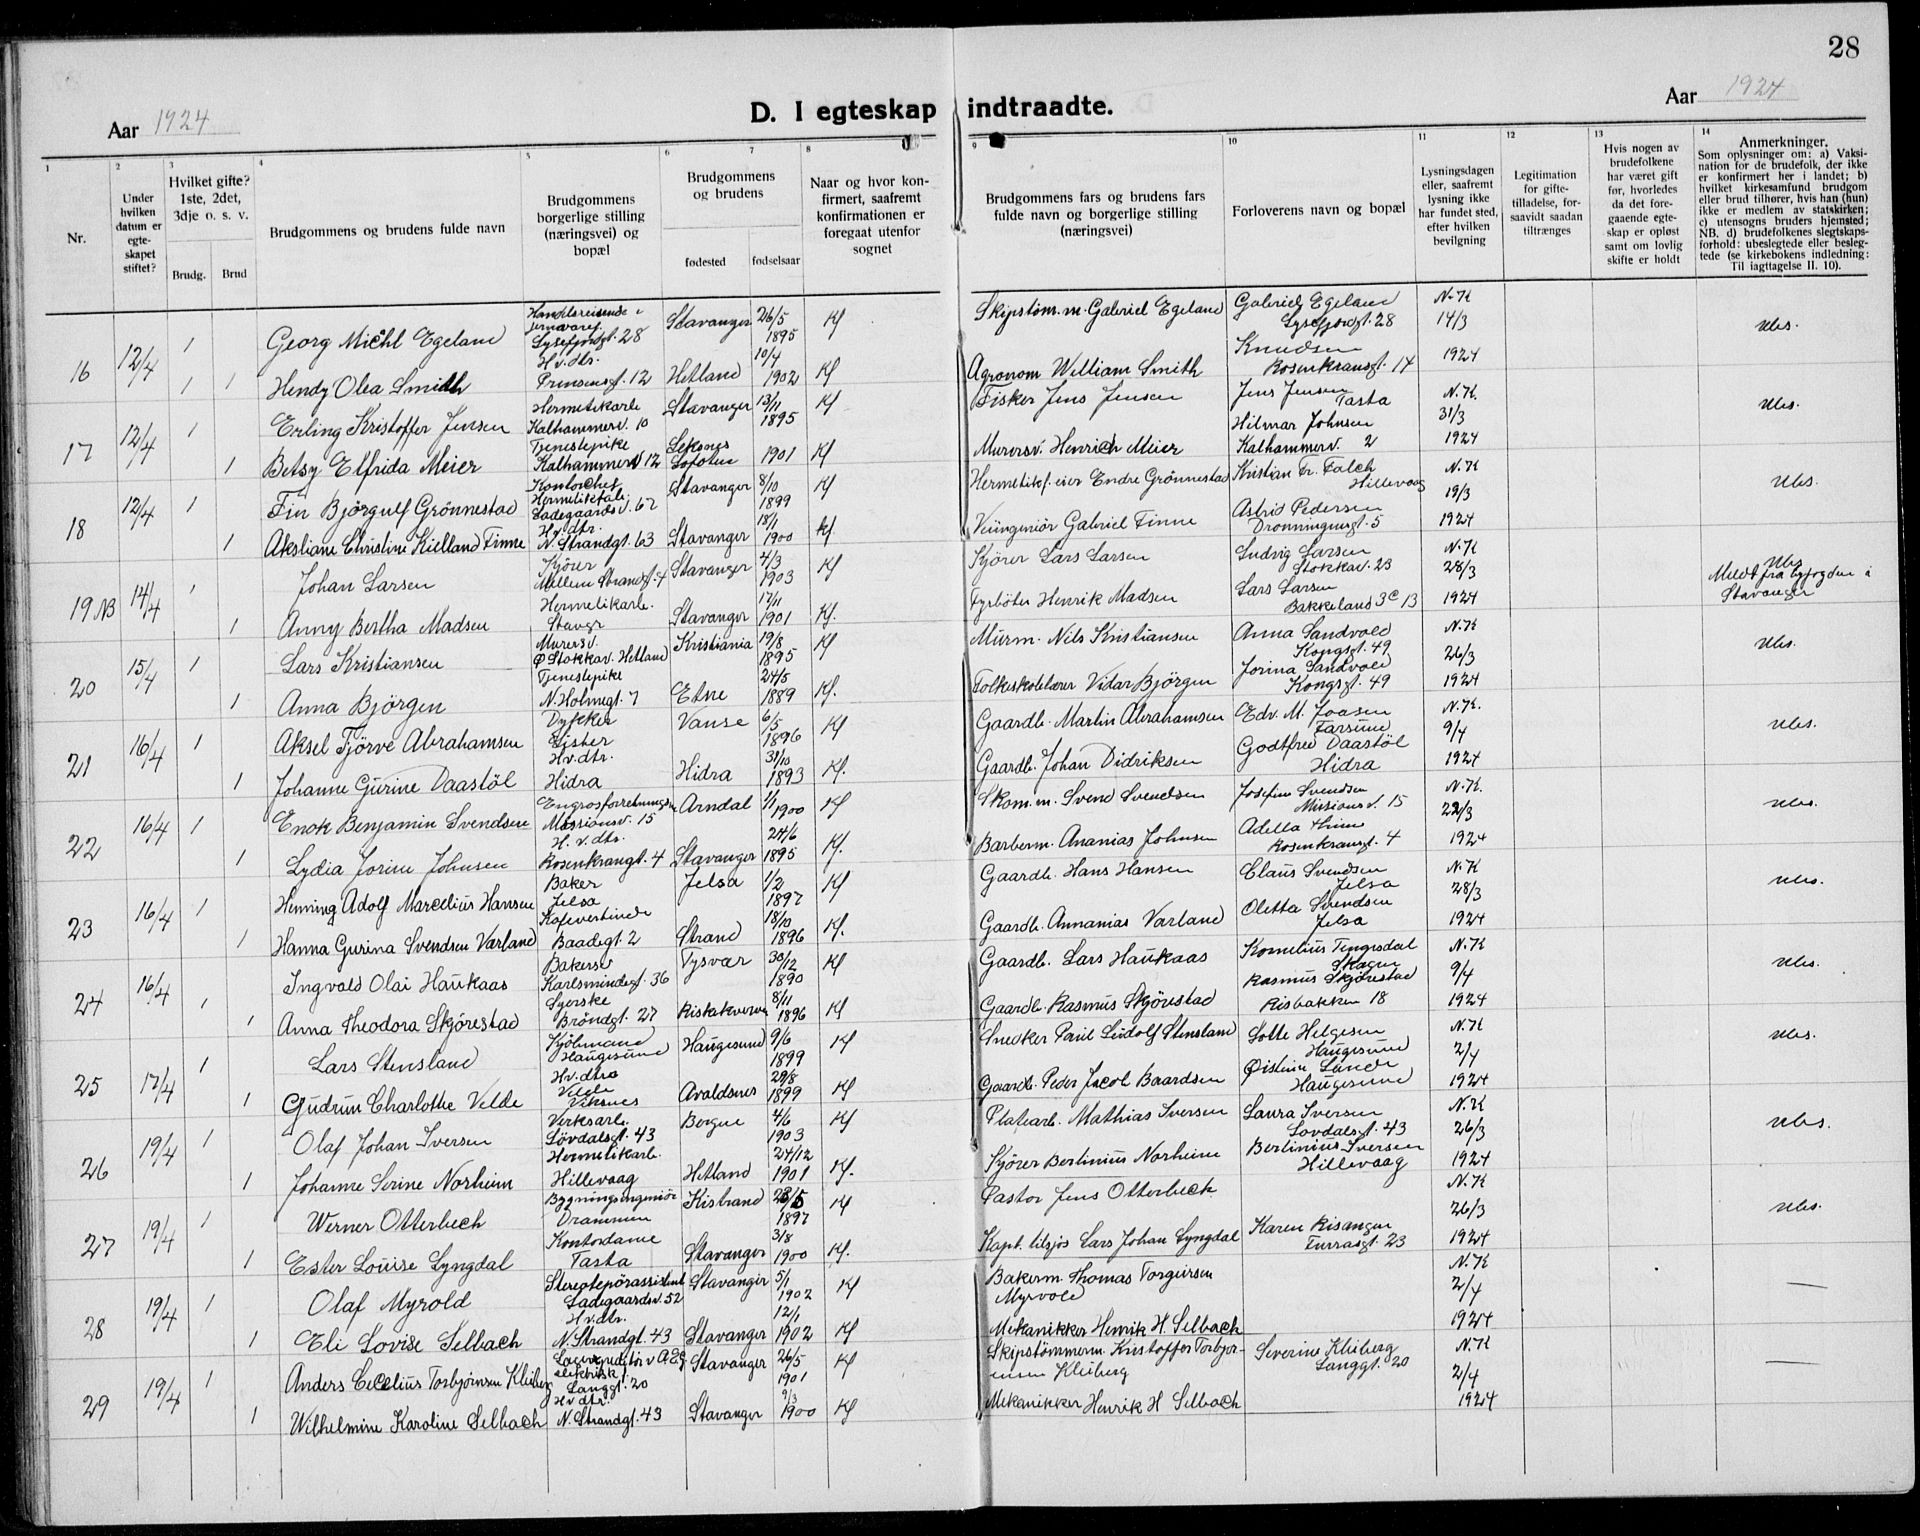 28
Aar 1924
D. I egteskap indtraadte.
Aar 1924
1
Nr.
2
Under hvilken datum er egte-skapet stiftet?
3
Hvilket gifte? 1ste, 2det, 3dje o. s. v.
Brudg.
Brud
4
Brudgommens og brudens fulde navn
5
Brudgommens borgerlige stilling (næringsvei) og bopæl
6
7
Brudgommens og brudens
fødested
fødselsaar
8
Naar og hvor kon-firmert, saafremt konfirmationen er foregaat utenfor sognet
9
Brudgommens fars og brudens fars fulde navn og borgerlige stilling (næringsvei)
10
Forloverens navn og bopæl
11
Lysningsdagen eller, saafremt lysning ikke har fundet sted, efter hvilken bevilgning
12
Legitimation for gifte-tilladelse, for-saavidt saadan tiltrænges
13
Hvis nogen av brudefolkene har været gift før, hvorledes da det fore-gaaende egte-skap er opløst samt om lovlig skifte er holdt
14
Anmerkninger.
Som oplysninger om: a) Vaksi-nation for de brudefolk, der ikke er konfirmert her i landet; b) hvilket kirkesamfund brudgom eller brud tilhører, hvis han (hun) ikke er medlem av statskirken; c) utensogns bruders hjemsted; NB. d) brudefolkenes slegtskaps-forhold: ubeslegtede eller besleg-tede (se kirkebokens indledning: Til iagttagelse II. 10).
16 12/4 1 Georg Michl Egeland Handelsreisende i jernvaref. Lysefjordgt. 28 Stavanger 26/5 1895 Kf Skipstøm.m. Gabriel Egeland Gabriel Egeland Lysefjordgt. 28 N.K 14/3 1924 Ubs.
1 1 Hendy Olea Smith Hv. dtr. Prinsensgt. 12 Hetland 10/4 1902 Kf Agronom William Smith Knudsen Rosenkransgt. 14
17 12/4 1 Erling Kristoffer Jensen Hermetikarb. Kalhammerv. 10 Stavanger 13/11 1895 Kf Fisker Jens Jensen Jens Jensen Tasta N.K. 31/3 1924 Ubs.
1 Betsy Elfrida Meier Tjenestepike Kalhammerv 12 Leknes Lofoten 1901 Kf Murersv. Henrich Meier Hilmar Johnsen Kalhammerv. 2
18 12/4 1 Fin Bjørgulf Grønnestad Kontorchef Hermetikfab. Ladegaardsv. 62 Stavanger 8/10 1899 Kf Hermetikf.eier Endre Grønnestad Kristian Fr. Falch Hillevaag N.K 19/3 1924 Ubs.
1 Aksliane Christine Kielland Finne Hv. dtr. N. Strandgt. 63 Stavanger 18/1 1900 Kf. Veiingeniør Gabriel Finne Astrid Pedersen Dronningensgt. 5
19 NB 14/4 1 Johan Larsen Kjører Mellem Strandgt. 4 Stavanger 4/3 1903 Kf Kjører Lars Larsen Ludvig Larsen Stokkav. 23 N.K 28/3 1924 Ubs Meldt fra byfogden i Stavanger
1 Anny Bertha Madsen Hermetikarb. Stavgr Stavanger 17/11 1901 Kf. Fyrbøter Henrik Madsen Lars Larsen Bakkeland 3c 13
20 15/4 1 Lars Kristiansen Murersv. Ø Stokkav. Hetland Kristiania 19/8 1895 Kf Murm. Nils Kristiansen Anna Sandvold Kongsgt. 49 N.K 26/3 1924 Ubs.
1 Anna Bjørgen Tjenestepike N. Holmegt. 7 Etne 24/5 1889 Kf. Folkeskolelærer Vidar Bjørgen Jorina Sandvold Kongsgt. 49
21 16/4 1 Aksel Tjörve Abrahamsen Dykker Lister Vanse 6/5 1896 Kf Gaardb. Martin Abrahamsen Edv. M. Joasen Farsund N.K. 9/4 1924 Ubs.
1 Johanne Gurine Daastöl Hv. dtr. Hidra Hidra 31/10 1893 Kf. Gaardb. Johan Didriksen Godtfred Daastöl Hidra
22 16/4 1 Enok Benjamin Svendsen Engrosforretningsm Missionsv. 15 Arndal 1/1 1900 Kf Skom.m. Svend Svendsen Josefine Svendsen Missionsv. 15 N.K. 22/3 1924 Ubs.
1 Lydia Jorine Johnsen H. v. dtr. Rosenkrangt. 4 Stavanger 24/6 1895 Kf. Barberm. Ananias Johnsen Adella Rosenkransgt. 4
23 16/4 1 Henning Adolf Marcelius Hansen Baker Jelsa Jelsa 1/2 1897 Kf Gaardb. Hans Hansen Claus Svendsen Jelsa N.K 28/3 1924 Ubs.
1 Hanna Gurina Svendsen Varland Kafevertinde Baadegt. 2 Strand 18/12 1896 Kf. Gaardb. Annanias Varland Oletta Svendsen Jelsa
24 16/4 1 Ingvald Olai Haukaas Bakersv Karlsmindegt. 36 Tysvær 30/12 1890 Kf Gaardb. Lars Haukaas Kornelius Tengesdal Skagen N.K 9/4 1924 Ubs.
1 Anna Theodora Skjörestad Syerske Bröndgt. 27 8/11 1896 Kf Gaardb. Rasmus Skjörestad Rasmus Skjörestad Risbakken 18
25 17/4 1 Lars Stensland Kjöbmand Haugesund Haugesund 9/6 1899 Kf Snedker Paul Ludolf Stensland Lotte Helgesen Haugesund N.K 2/4 1924 Ubs.
1 Gudrun Charlothe Velde Hv. dtr Velde Viksnes Avaldsnes 29/8 1899 Kf Gaardb. Peder Jacob Baardsen Øistein Lande Haugesund
26 19/4 1 Olaf Johan Iversen Verksarb. Lövdalsgt. 43 Borgne 4/6 1903 Kf Platearb. Mathias Iversen Laura Iversen Lovdalsgt. 43 N.K 26/3 1924 Ubs.
1 Johanne Serine Norheim Hermetikarb. Hillevaag Hetland 24/12 1901 Kf. Kjører Bertinius Norheim Bertinius Iversen Hillevaag
27 19/4 1 Werner Otterbech Bygningsingeniør Drammen Kistrand 23/5 1897 Kf Pastor Jens Otterbech N.K 26/3 1924 Ubs.
1 Ester Louise Lyngdal Kontordame Tasta Stavanger 3/8 1900 Kf. Kapt. tilsjøs Lars Johan Lyngdal Karen Risanger Furrasgt. 23
28 19/4 1 Olaf Myrold Stereotepörassistent Ladegaardsv. 52 Stavanger 5/1 1902 Kf Bakerm. Thomas Torgersen Myrvold N.K 2/4 1924 —
1 Eli Lovise Selbach Hv. dtr. N. Strandgt. 43 Stavanger 12/1 1902 Kf Mekanikker Henrik H. Selbach
29 19/4 1 Anders Cecelius Torbjørnsen Kleiberg Lagerexpeditör v A.E.G elektrisk f. Langgt. 20 Stavanger 26/5 1901 Kf Skipstømmerm. Kristoffer Torbjør-nsen Kleiberg Severine Kleiberg Langgt. 20 N.K 2/4 1924 —
1 Wilhelmine Karoline Selbach Hv dtr. N. Strandgt. 43 Stavanger 9/3 1900 Kf Mekanikker Henrik H Selbach